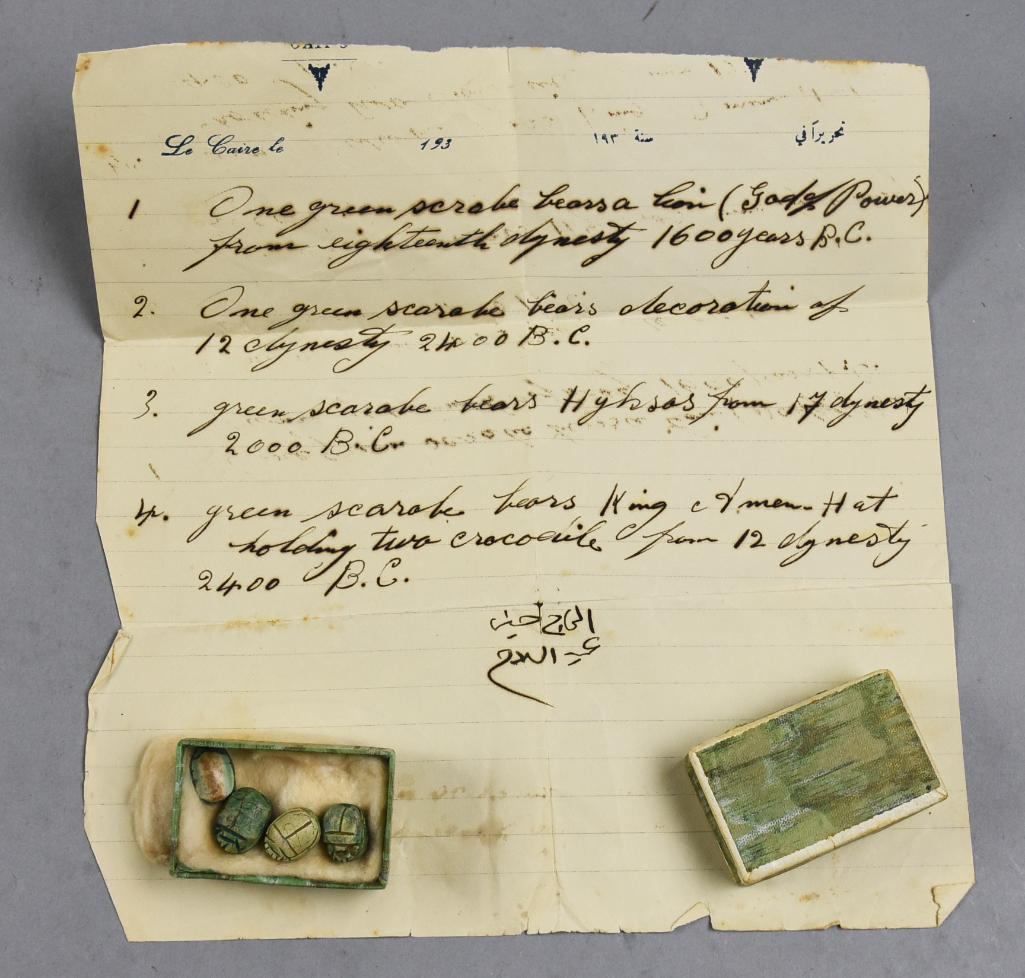 Le Caire le 193 سنة ١٩٣ تحريراً في
1 One green scrabe bears a lion (God of Power)
from eighteenth dynesty 1600 years B.C.
2. One green scarabe bears decoration of
12 dynesty 2400 B.C.
3. green scarabe bears Hyksos from 17 dynesty
2000 B.C.
4. green scarabe bears King Amen-Hat
holding two crocodile from 12 dynesty
2400 B.C.
الحاج حسين